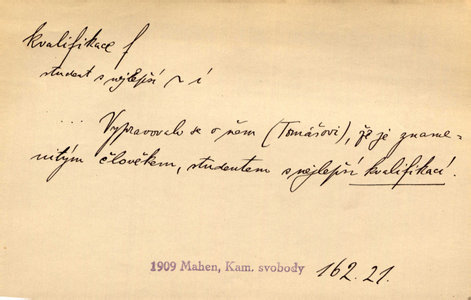 kvalifikace f
student s nejlepší ~ í
... Vypravovalo se o něm (Tomášovi), že je zname-
nitým člověkem, studentem s nejlepší kvalifikací.
1909 Mahen, Kam. svobody 162.21.